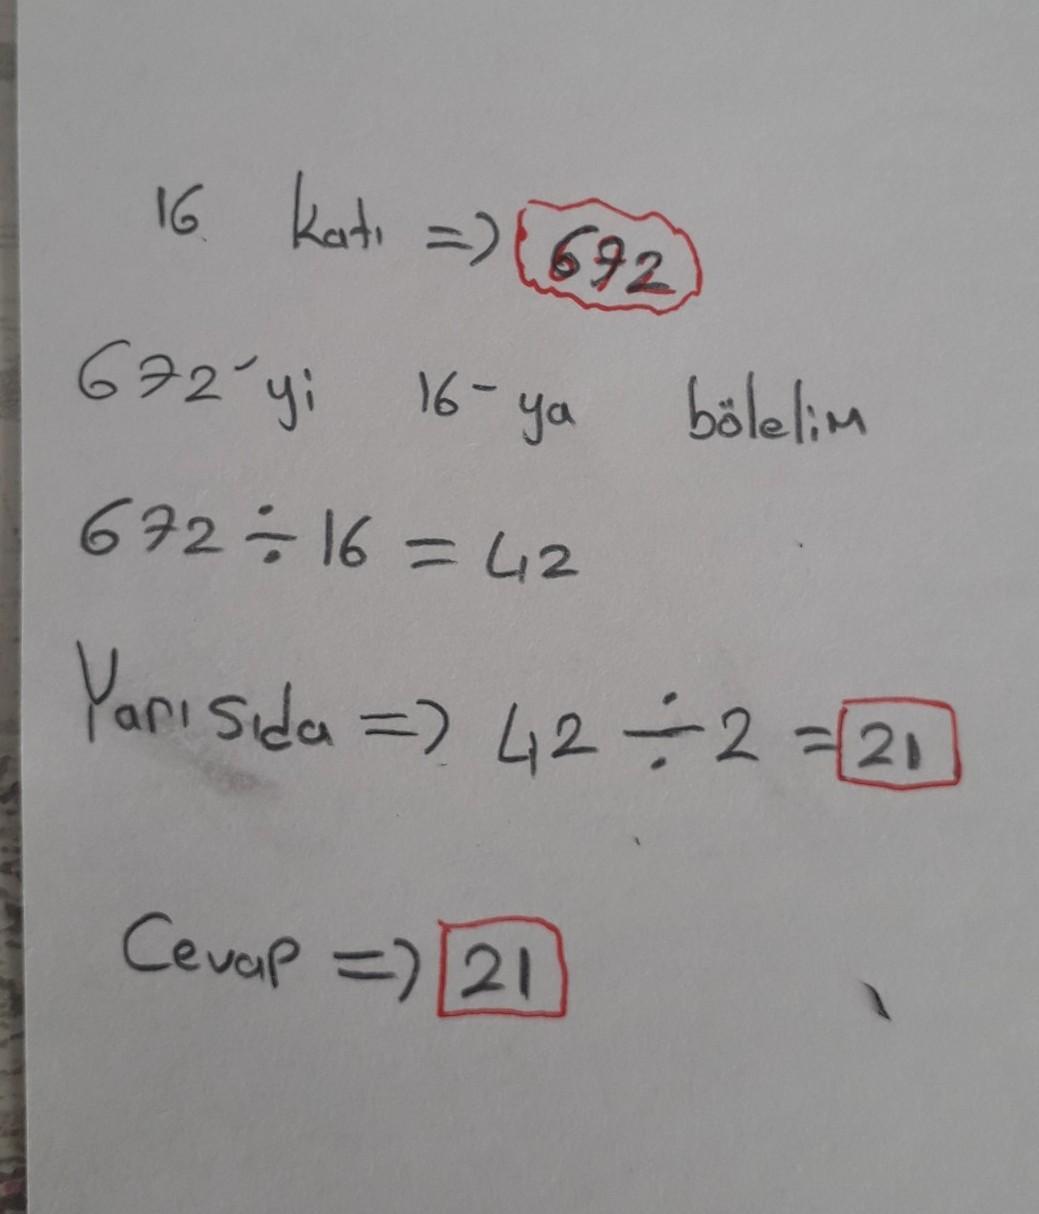 16 katı => 672
672'yi 16-ya bölelim
672 ÷ 16 = 42
Yarısıda => 42 ÷ 2 = 21
Cevap => 21